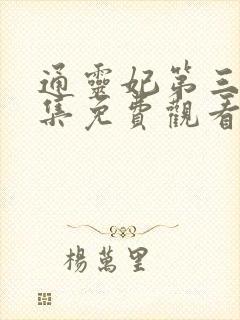 通靈妃第三
集免費觀看
楊萬里